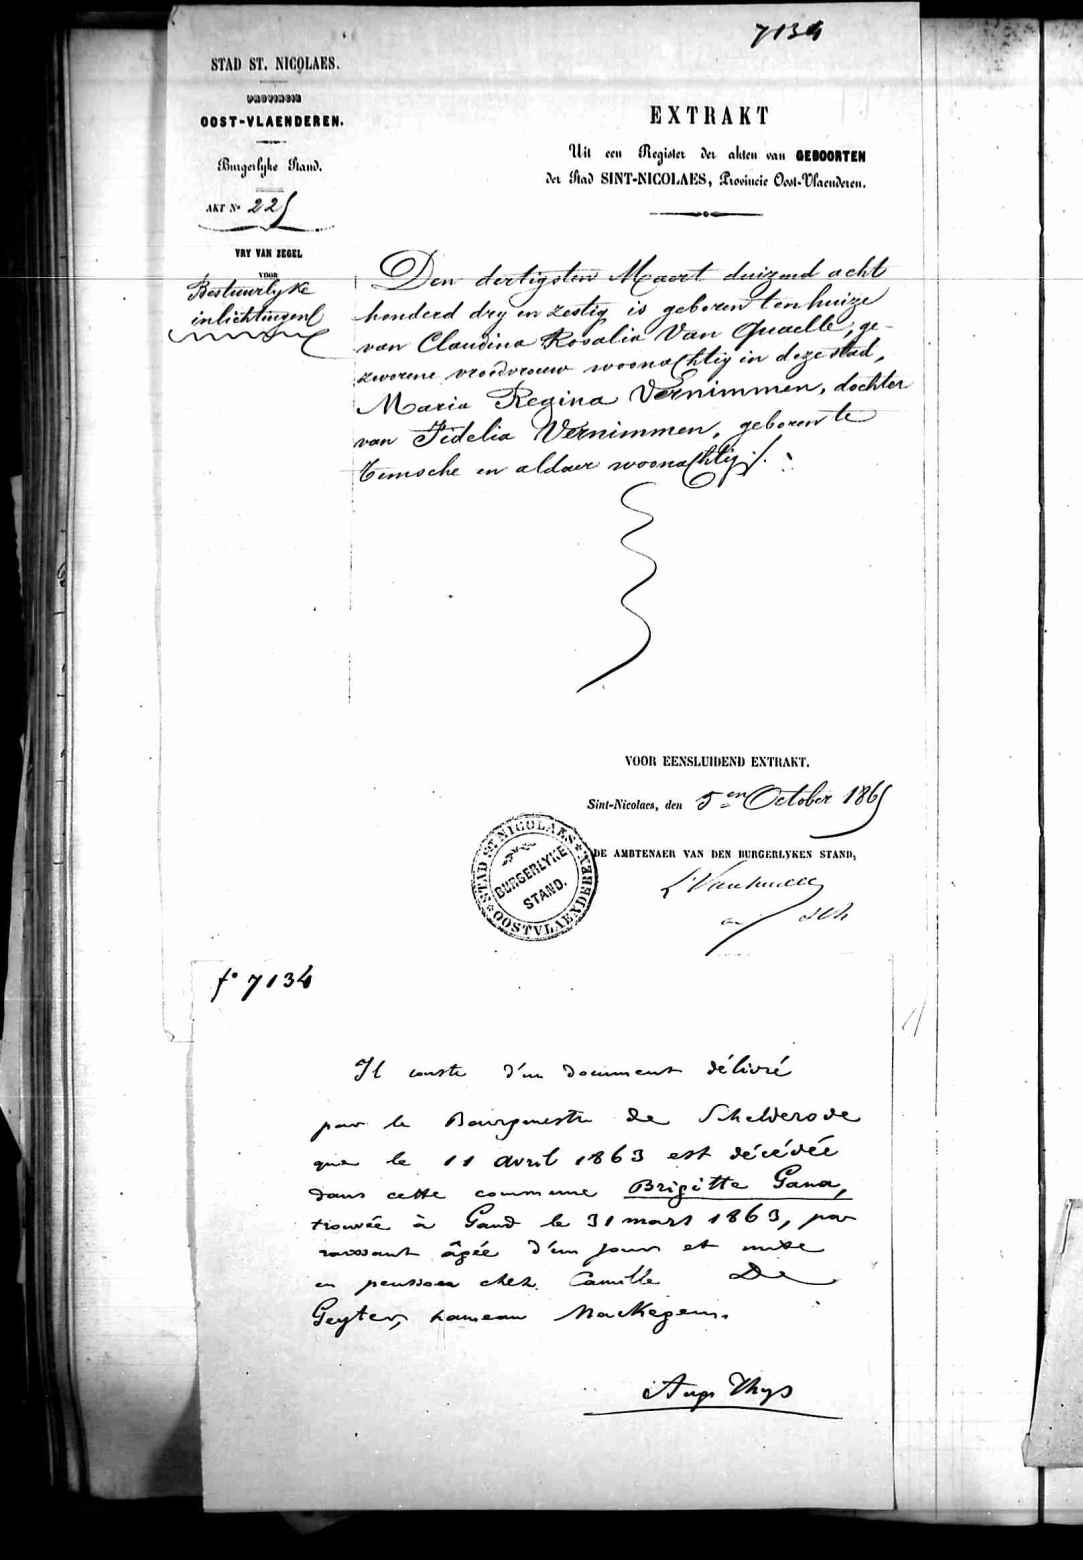 7134
STAD ST. NICOLAES.
PROVINCIE
OOST-VLAENDEREN.
Burgerlyke Stand.
AKT No 225
VRY VAN ZEGEL
VOOR
Bestuurlyke
inlichtingen
EXTRAKT
Uit een Register der akten van GEBOORTEN
der Stad SINT-NICOLAES, Provincie Oost-Vlaenderen.
Den dertigsten Maert duizend acht
honderd dry en zestig is geboren ten huize
van Claudina Rosalia Van Quaelle, ge-
zworene vroedvrouw woonachtig in deze stad,
Maria Regina Vernimmen, dochter
van Fidelia Vernimmen, geboren te
Temsche en aldaer woonachtig ./.
VOOR EENSLUIDEND EXTRAKT.
Sint-Nicolaes, den 5en October 1865
DE AMBTENAER VAN DEN BURGERLYKEN STAND,
STAD ST NICOLAES
BURGERLYKE
STAND.
OOSTVLAENDEREN
fo 7134
Il conste d'un document délivré
par le Bourgmestre de Schelderode
que le 11 avril 1863 est décédée
dans cette commune Brigitte Gana,
trouvée à Gand le 31 mars 1863, par
âgée d'un jour et mise
en pension chez Camille De
Geyter, hameau Mackegem.
Aug Thys